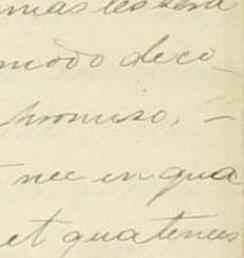 mas les será
modo deco_
promiso, –
nec in qua
et quatenus